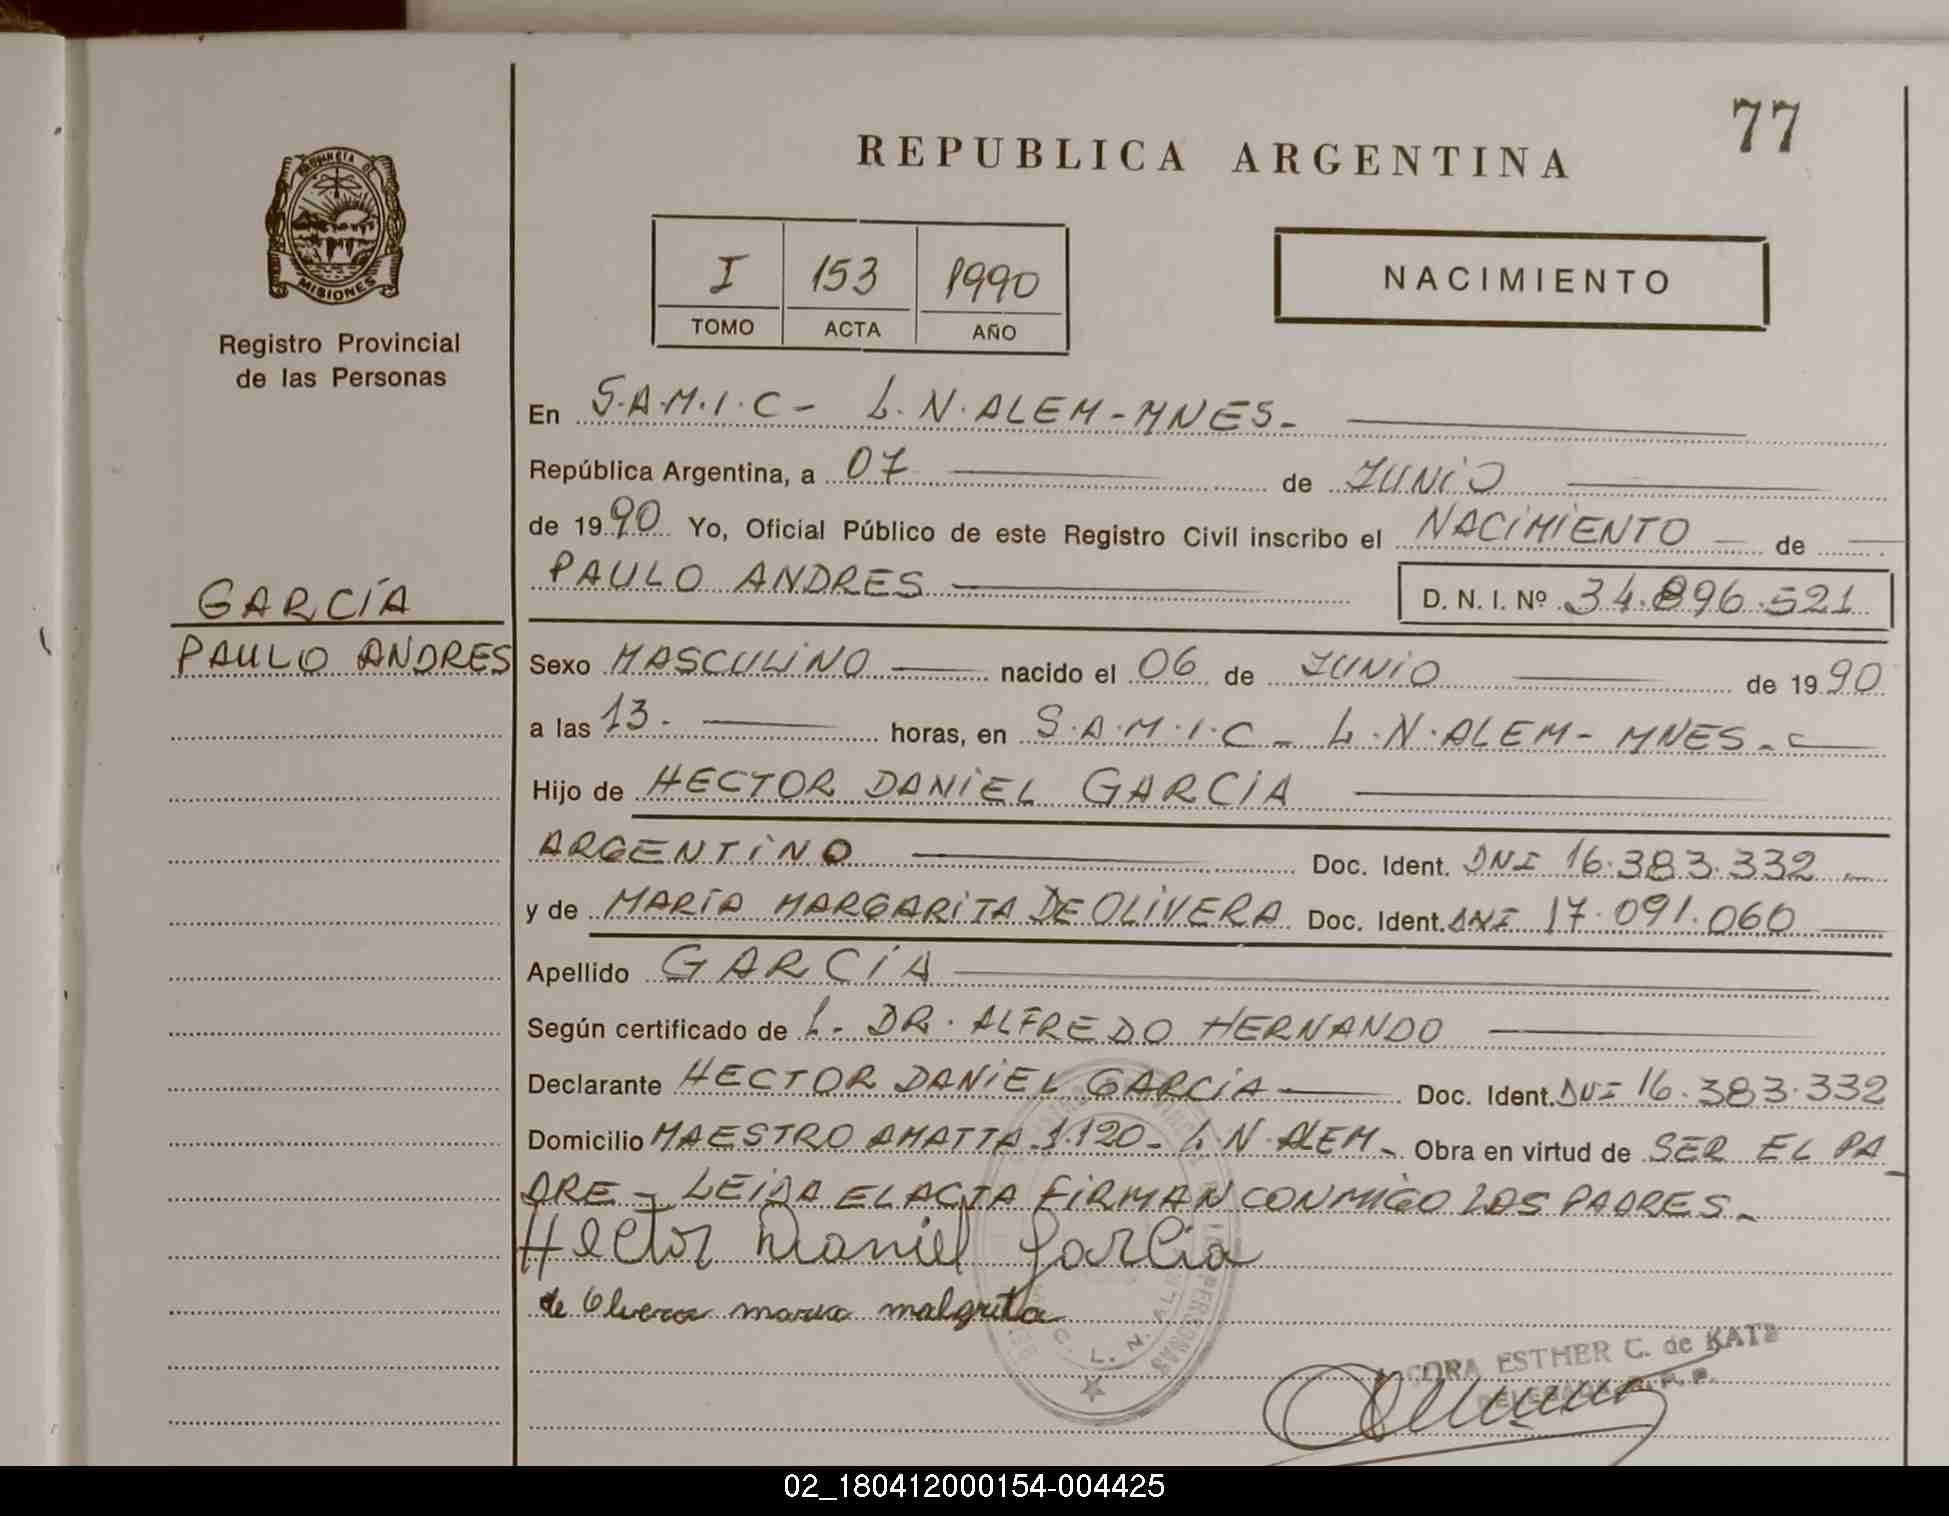 77
REPUBLICA ARGENTINA
PROVINCIA DE
MISIONES
Registro Provincial
de las Personas
I 153 1990
TOMO ACTA AÑO
NACIMIENTO
En S.A.M.I.C - L.N.ALEM-MNES-
República Argentina, a 07 de JUNIO
de 1990 Yo, Oficial Público de este Registro Civil inscribo el NACIMIENTO de
PAULO ANDRES D.N.I. Nº 34.896.521
GARCÍA
PAULO ANDRES
Sexo MASCULINO nacido el 06 de JUNIO de 1990
a las 13. horas, en S.A.M.I.C - L.N.ALEM- MNES-
Hijo de HECTOR DANIEL GARCIA
ARGENTINO Doc. Ident. DNI 16.383.332
y de MARÍA MARGARITA DE OLIVERA Doc. Ident. DNI 17.091.060
Apellido GARCÍA
Según certificado de L. DR. ALFREDO HERNANDO
Declarante HECTOR DANIEL GARCÍA Doc. Ident. DNI 16.383.332
Domicilio MAESTRO AMATTA 1.120- L.N.ALEM- Obra en virtud de SER EL PA_
DRE - LEIDA EL ACTA FIRMAN CONMIGO LOS PADRES-
Hector Daniel Garcia
de Olivera maria malgrita
C. L. N. ALEM
PERSONAS
CORA ESTHER C. de KATZ
DELEGADA R. P. P.
02_180412000154-004425